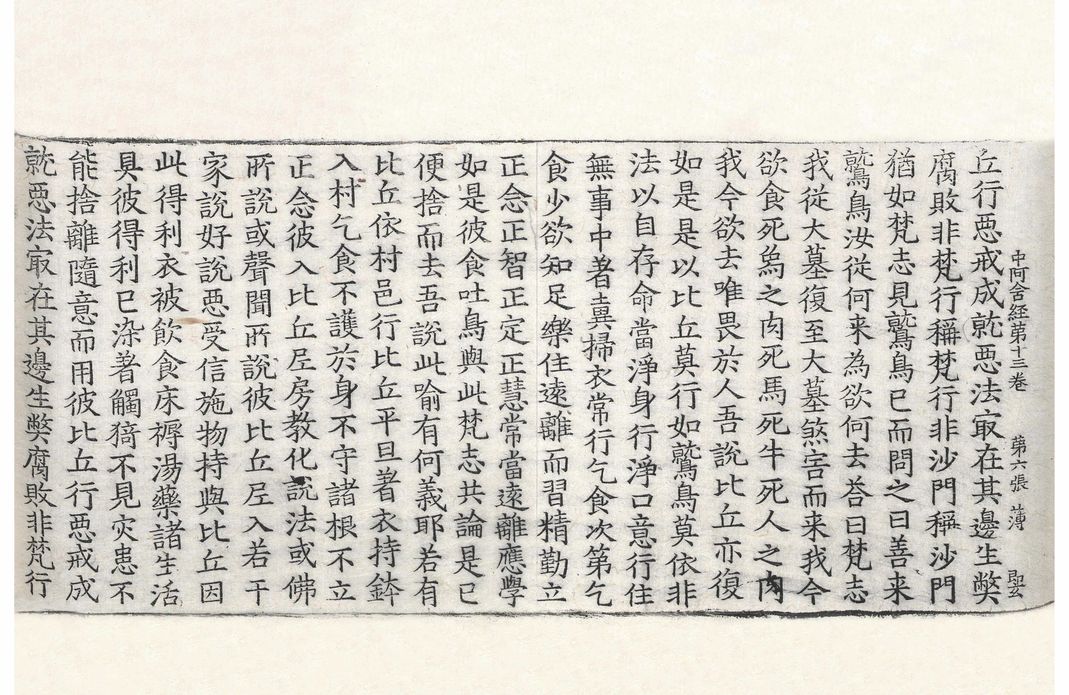 中阿含経第十三巻 第六張 薄
丘行惡戒成就惡法㝡在其邊生弊
腐敗非梵行稱梵行非沙門稱沙門
猶如梵志見鷲鳥已而問之曰善来
鷲鳥汝從何来為欲何去荅曰梵志
我從大墓復至大墓煞害而来我今
欲食死烏之肉死馬死牛死人之肉
我今欲去唯畏於人吾說比丘亦復
如是是以比丘莫行如鷲鳥莫依非
法以自存命當淨身行淨口意行住
無事中著糞掃衣常行乞食次第乞
食少欲知足樂住遠離而習精勤立
正念正智正定正慧常當遠離應學
如是彼食吐鳥與此梵志共論是已
便捨而去吾說此喻有何義耶若有
比丘依村邑行比丘平旦著衣持鉢
入村乞食不護於身不守諸根不立
正念彼入比丘𡰱房教化說法或佛
所說或聲聞所說彼比丘𡰱入若干
家說好說惡受信施物持與比丘因
此得利衣被飲食床褥湯藥諸生活
具彼得利已染著觸猗不見灾患不
能捨離隨意而用彼比丘行惡戒成
就惡法㝡在其邊生弊腐敗非梵行